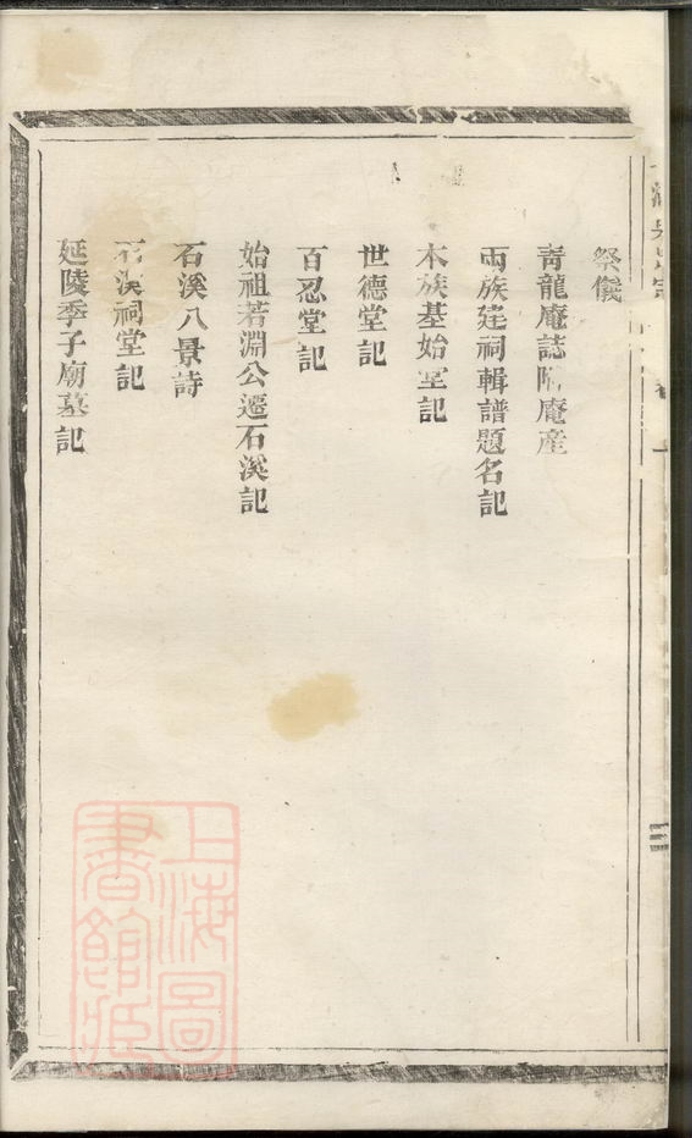 祭儀
青龍庵誌附庵産
兩族建祠輯譜題名記
本族基始室記
世德堂記
百忍堂記
始祖若淵公遷石溪記
石溪八景詩
石溪祠堂記
延陵季子廟墓記
三
上海圖書館藏